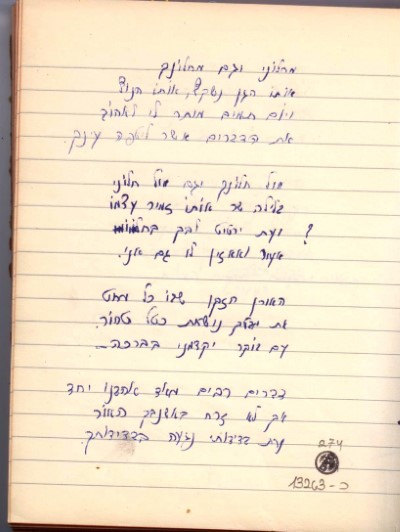 מחלוני וגם מחלונך
אותו הגן נשקף, אותו הנוף
ויום תמים מותר לי לאהוב
את הדברים אשר ליטפה עינך.
מול חלונך וגם מול חלוני
בלילה שר אותו זמיר עצמו
ועת ירטיט לבך בחלומו ?
אעור ואאזין לו גם אני.
האורן הזקן שבו כל מחט
את מבטך נושאת כטל טהור.
עם בוקר יקדמני בברכה –
דברים רבים מאד אהבנו יחד
אך לא זרח באשנבך האור
עת בדידותי נגעה בבדידותך.
274
13263-כ